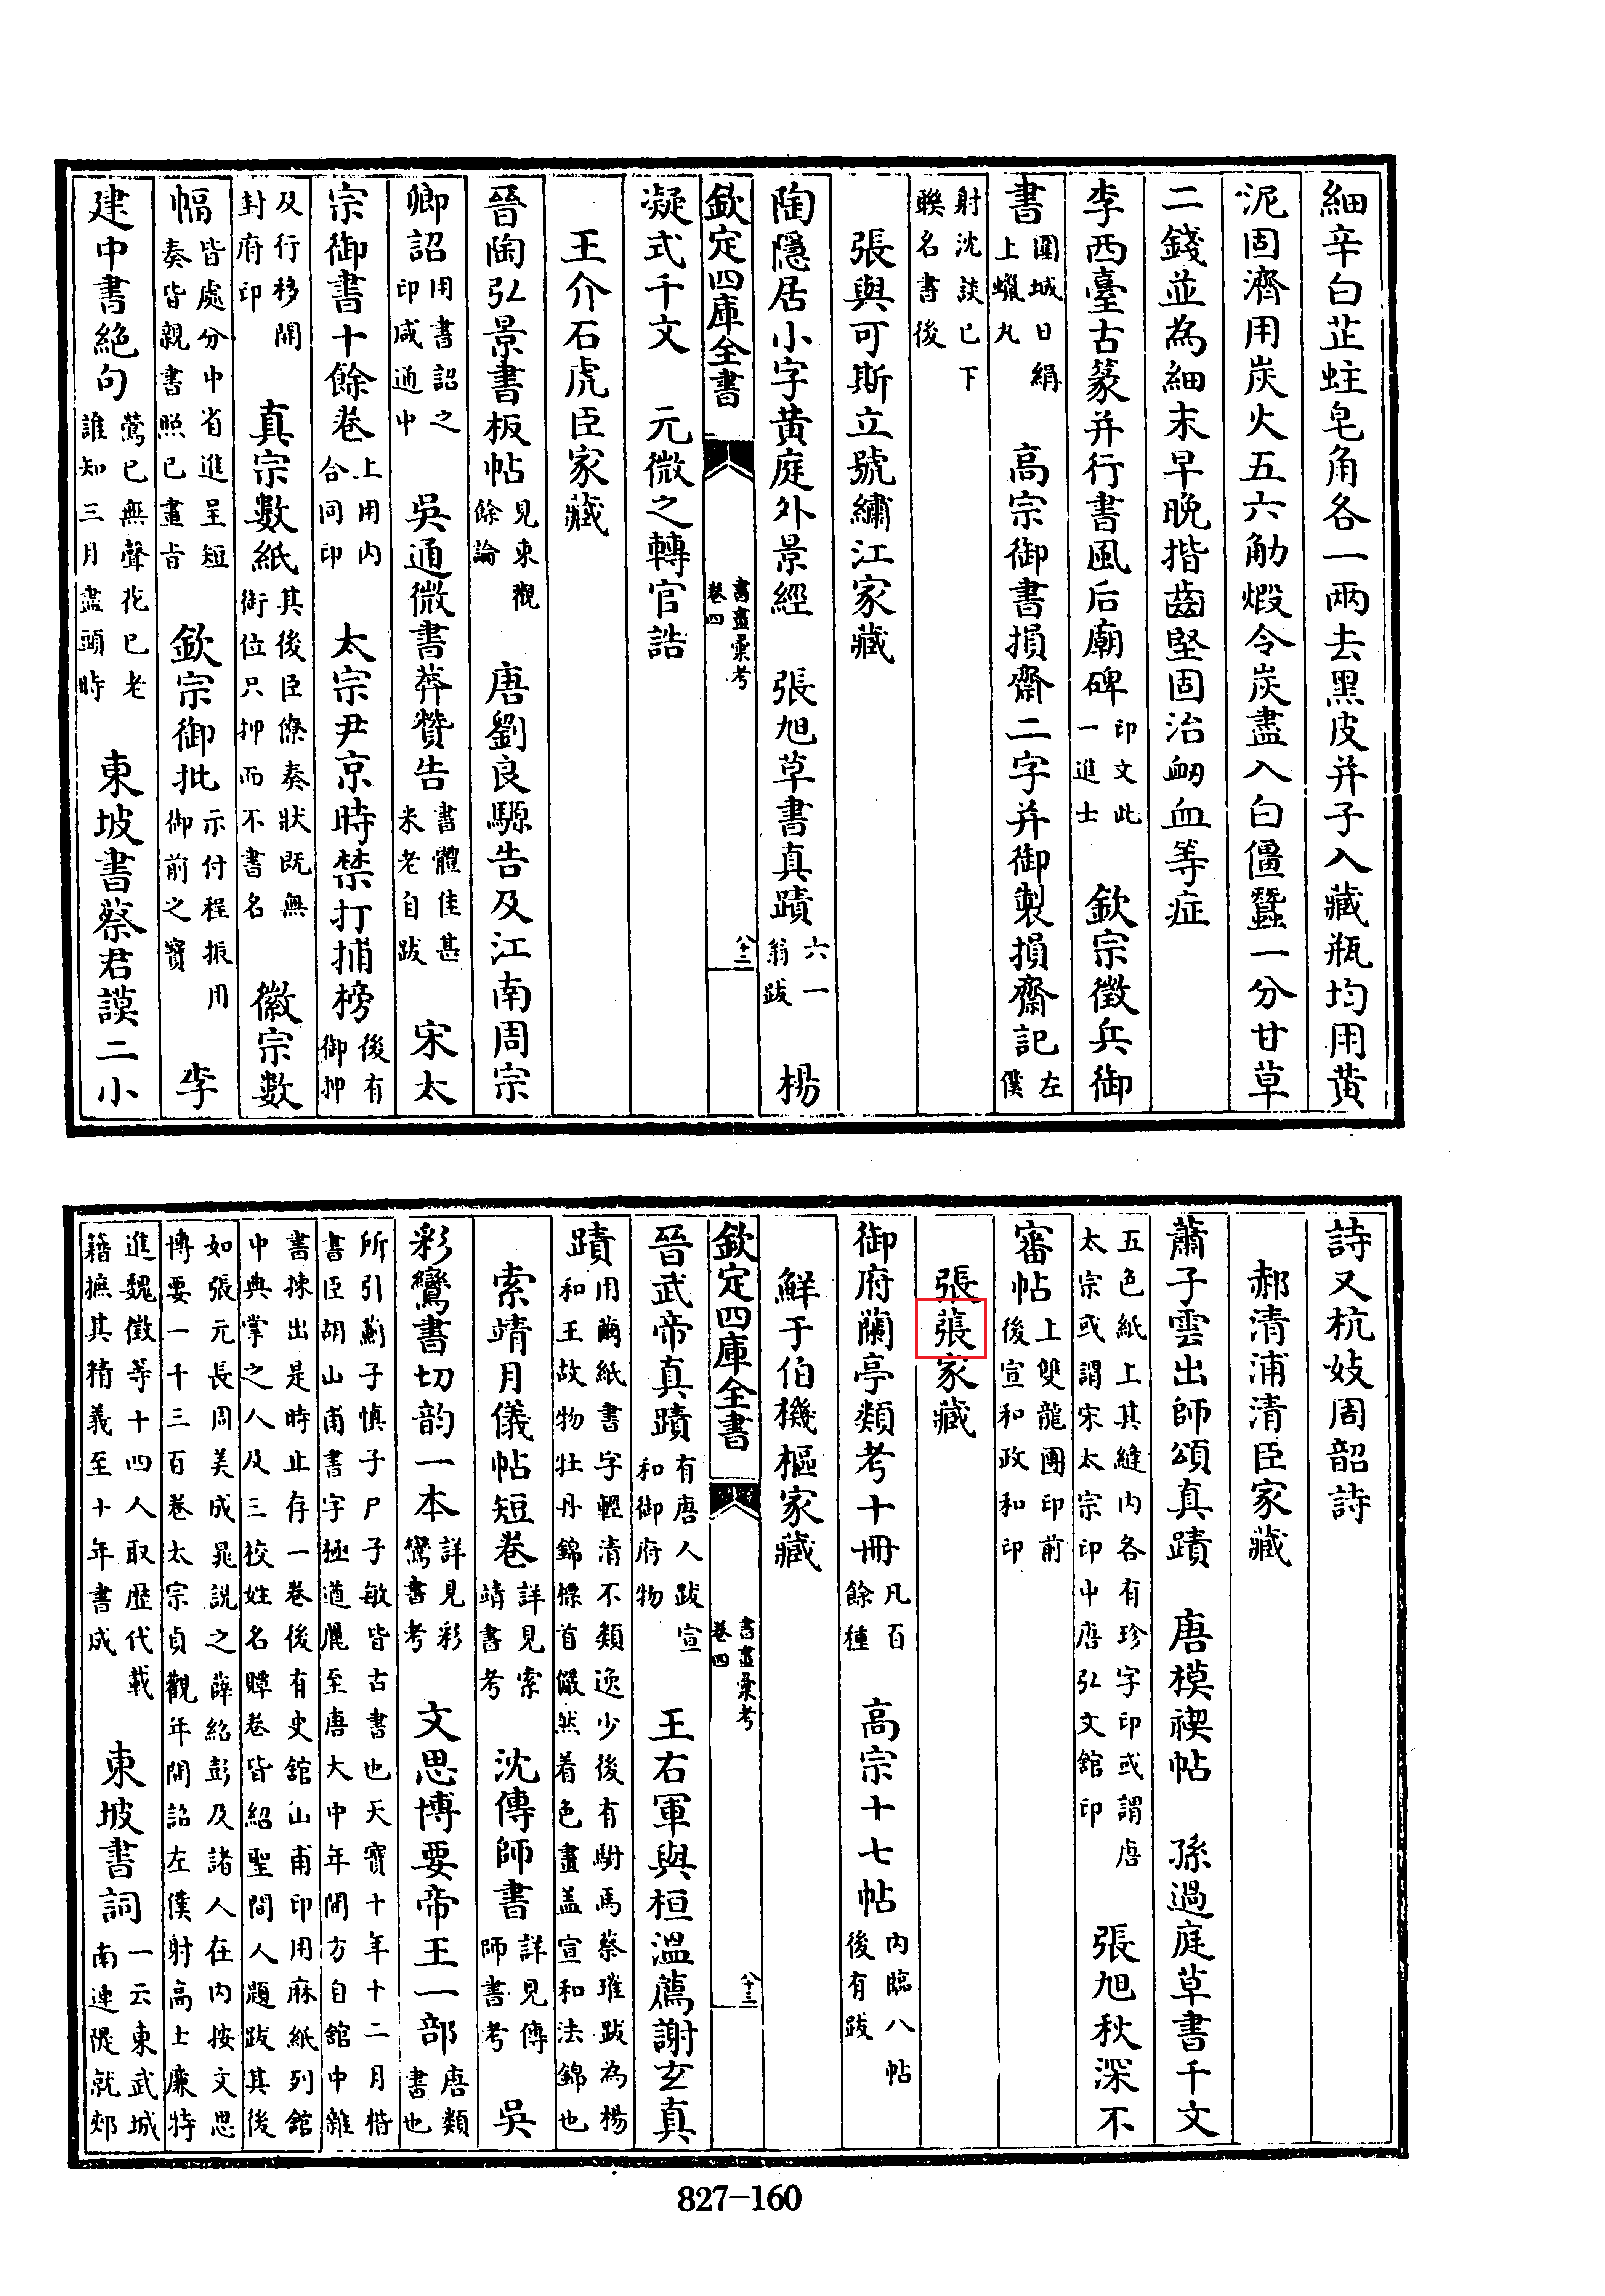 細辛白芷蛀皂角各一兩去黑皮并子入藏瓶均用黄
泥固濟用炭火五六觔煅令炭盡入白僵蠶一分甘草
二錢並為細末早晚揩齒堅固治衂血等症
李西臺古篆并行書風后廟碑印文此一進士 欽宗徵兵御
書圍城日絹上蠟丸 高宗御書損齋二字并御製損齋記左僕
射沈該已下聨名書後
張與可斯立號繡江家藏
陶隱居小字黄庭外景經 張旭草書真蹟六一翁跋 楊
欽定四庫全書 書畫彙考卷四 八十二
凝式千文 元微之轉官誥
王介石虎臣家藏
晉陶弘景書板帖見東觀餘論 唐劉良驥告及江南周宗
卿詔用書詔之印咸通中 吳通微書莽贊告書體佳甚米老自跋 宋太
宗御書十餘卷上用内合同印 太宗尹京時禁打捕榜後有御押
及行移開封府印 真宗數紙其後臣僚奏狀既無銜位只押而不書名 徽宗數
幅皆處分中省進呈短奏皆親書照已畫旨 欽宗御批示付程振用御前之寳 李
建中書絶句鶯已無聲花已老誰知三月盡頭時 東坡書蔡君謨二小
詩又杭妓周韶詩
郝清浦清臣家藏
蕭子雲出師頌真蹟 唐模禊帖 孫過庭草書千文
五色紙上其縫内各有珍字印或謂唐太宗或謂宋太宗印中唐弘文舘印 張旭秋深不
審帖上雙龍團印前後宣和政和印
張家藏
御府蘭亭類考十冊凡百餘種 高宗十七帖内臨八帖後有跋
鮮于伯機樞家藏
欽定四庫全書 書畫彙考卷四 八十三
晉武帝真蹟有唐人跋宣和御府物 王右軍與桓溫薦謝玄真
蹟用繭紙書字輕清不類逸少後有駙馬蔡璀跋為楊和王故物牡丹錦褾首儼然着色畫盖宣和法錦也
索靖月儀帖短卷詳見索靖書考 沈傳師書詳見傳師書考 吳
彩鸞書切韵一本詳見彩鸞書考 文思博要帝王一部唐類書也
所引蒯子慎子尸子敏皆古書也天寳十年十二月楷書臣胡山甫書字極遒麗至唐大中年間方自舘中雜
書揀出是時止存一卷後有史舘山甫印用麻紙列舘中典掌之人及三校姓名贉卷皆紹聖間人題跋其後
如張元長周美成晁説之薛紹彭及諸人在内按文思博要一千三百卷太宗貞觀年間詔左僕射高士廉特
進魏徵等十四人取歴代載籍摭其精義至十年書成 東坡書詞一云東武城南連隄就郟
827-160